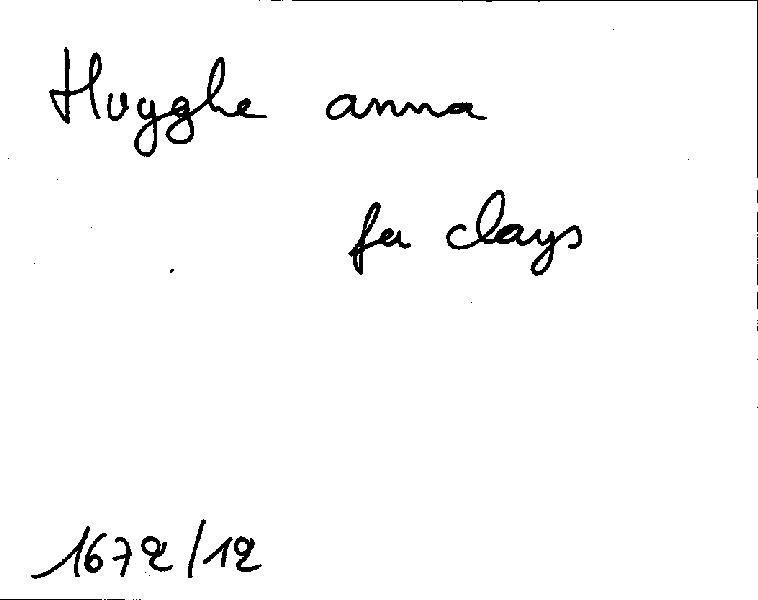 Huyghe anna
fa clays
1672/12